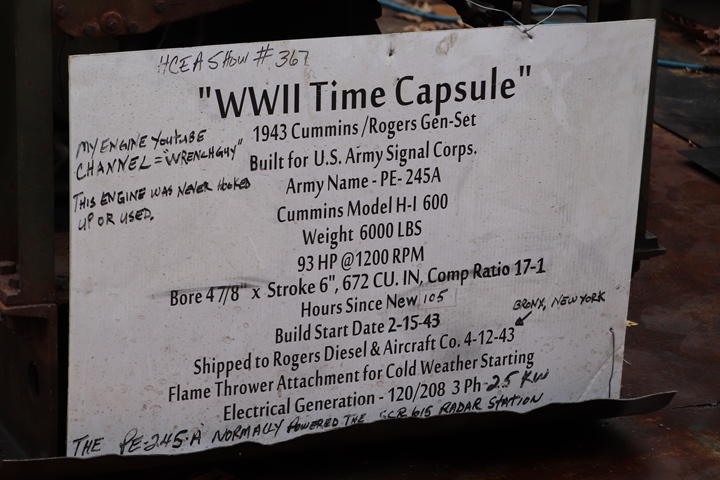 HCEA SHOW # 367
"WWII Time Capsule"
MY ENGINE YouTUBE
CHANNEL = "WRENCHGUY"
THIS ENGINE WAS NEVER HOOKED
UP OR USED.
1943 Cummins /Rogers Gen-Set
Built for U.S. Army Signal Corps.
Army Name - PE- 245A
Cummins Model H-I 600
Weight 6000 LBS
93 HP @1200 RPM
Bore 4 7/8" x Stroke 6", 672 CU. IN, Comp Ratio 17-1
Hours Since New 105
Build Start Date 2-15-43
BRONX, NEW YORK
Shipped to Rogers Diesel & Aircraft Co. 4-12-43
Flame Thrower Attachment for Cold Weather Starting
Electrical Generation - 120/208 3 Ph - 25 KW
THE PE-245-A NORMALLY POWERED THE SCR 615 RADAR STATION